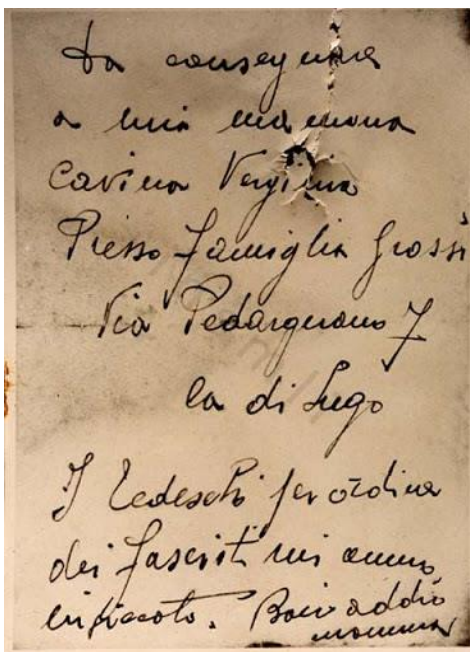 Da consegnare
a mia mamma
Cavina Vergina
Presso famiglia Grossi
Via Pedergnano 7
la di Lugo
I Tedeschi per ordine
dei fascisti mi anno
inpiccato. Bacio addio
mamma